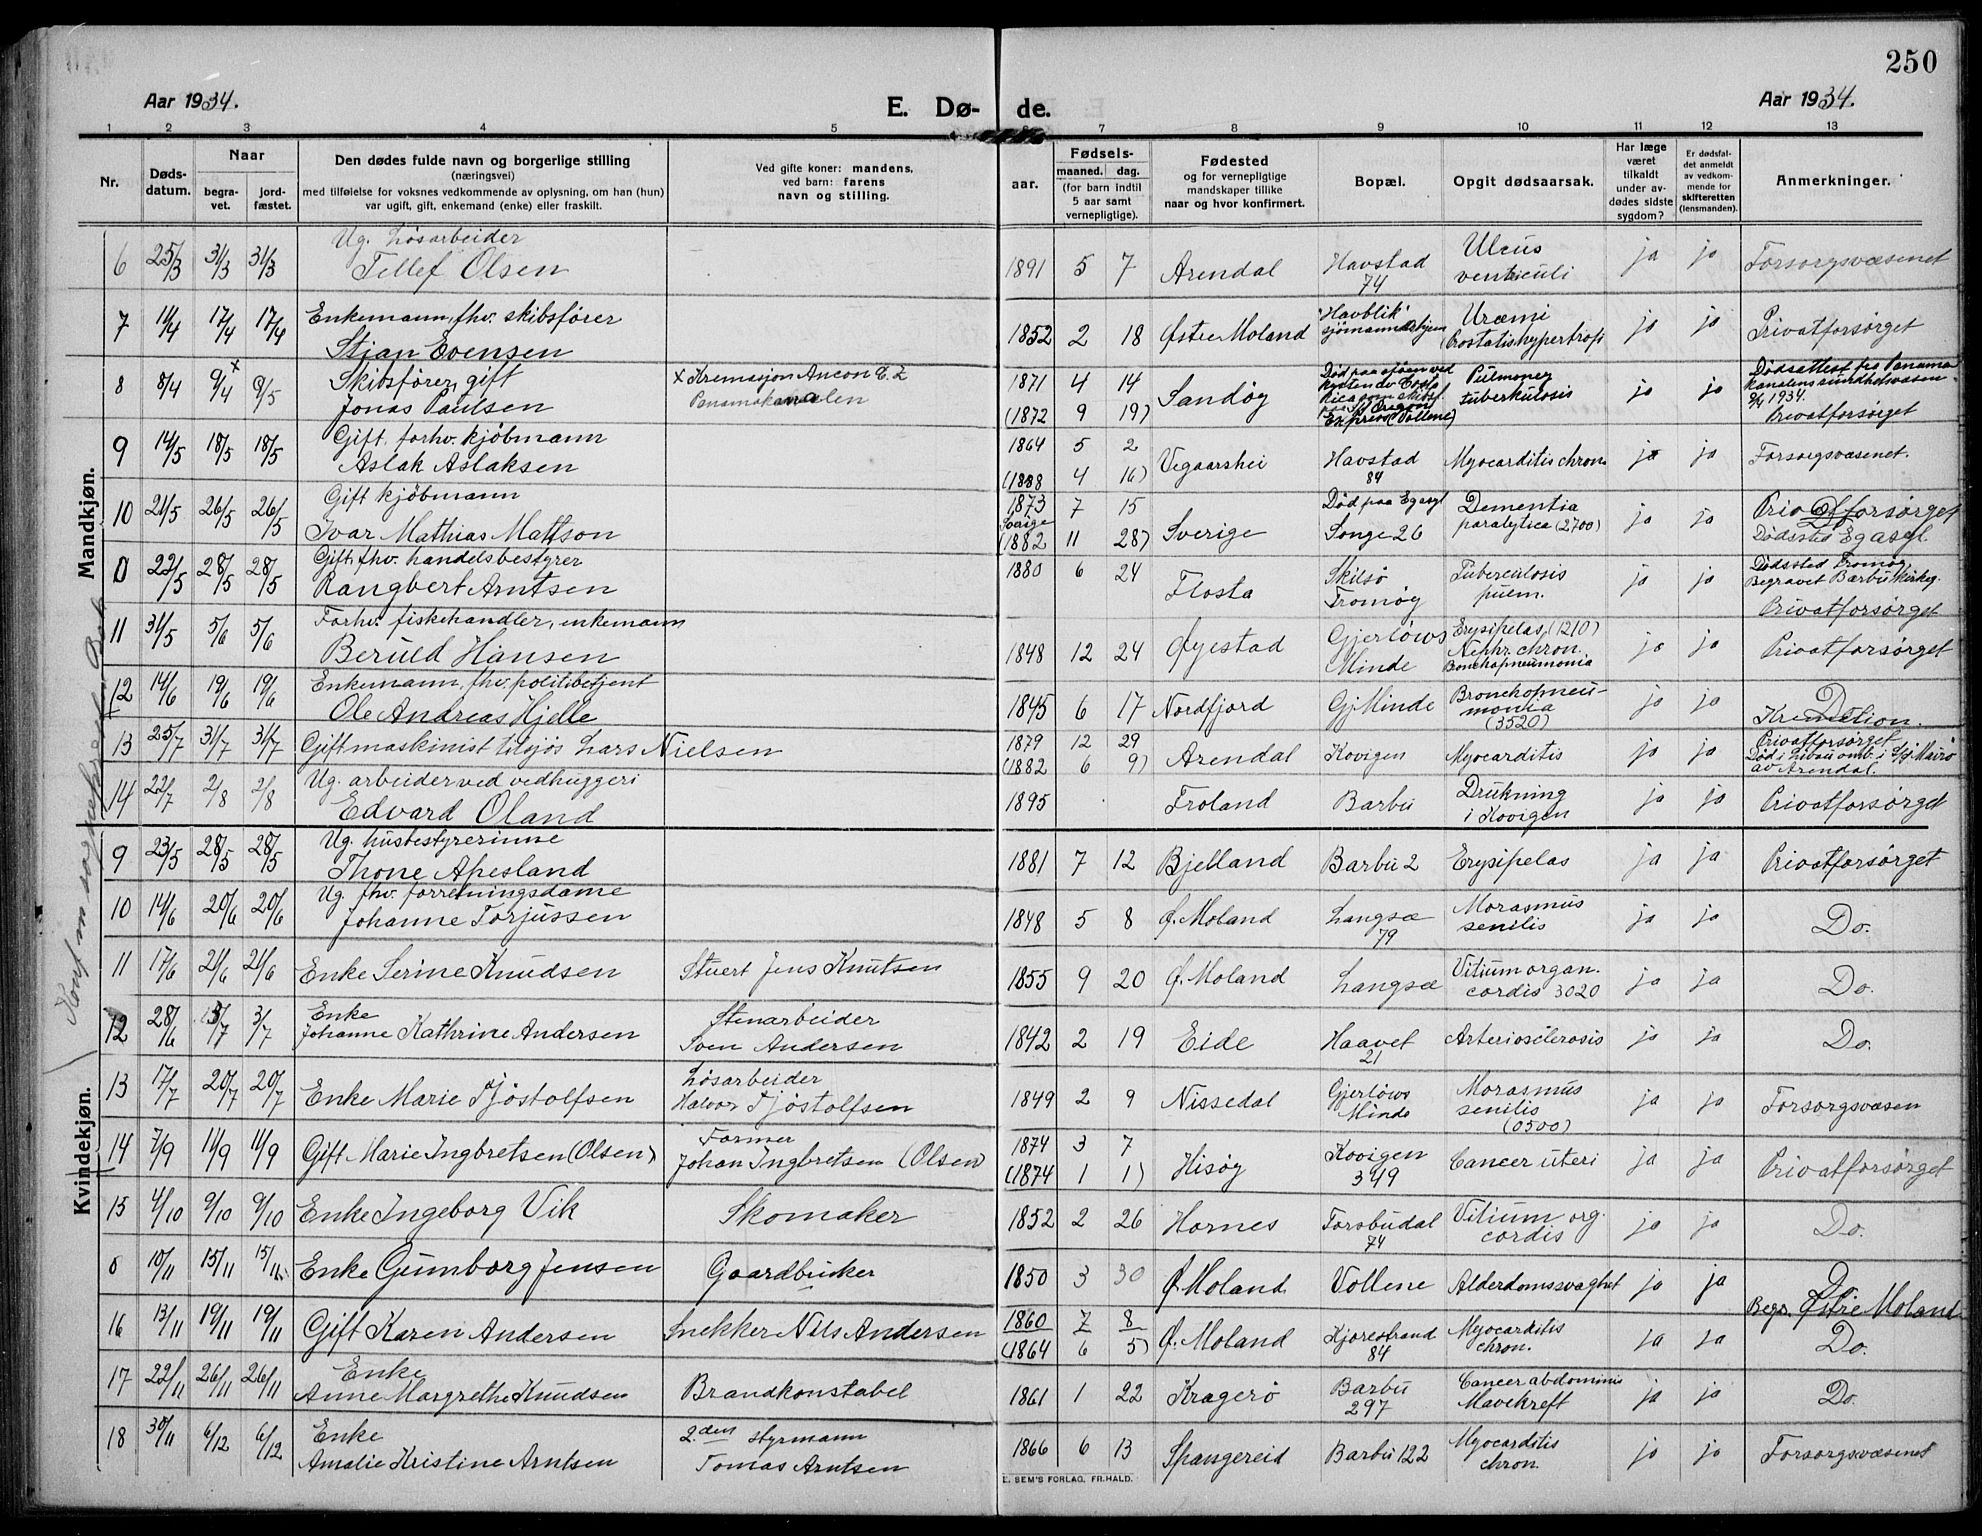 250
Aar 1934.
E. Dø-
de.
Aar 1934.
1 2 3 4 5 6 7 8 9 10 11 12 13
Nr.
Døds-
datum.
Naar
begra-
vet.
jord-
fæstet.
Den dødes fulde navn og borgerlige stilling
(næringsvei)
med tilføielse for voksnes vedkommende av oplysning, om han (hun)
var ugift, gift, enkemand (enke) eller fraskilt.
Ved gifte koner: mandens,
ved barn: farens
navn og stilling.
Fødsels-
aar.
maaned. dag.
(for barn indtil
5 aar samt
vernepligtige).
Fødested
og for vernepligtige
mandskaper tillike
naar og hvor konfirmert.
Bopæl.
Opgit dødsaarsak.
Har læge
været
tilkaldt
under av-
dødes sidste
sygdom?
Er dødsfal-
det anmeldt
av vedkom-
mende for
skifteretten
(lensmanden).
Anmerkninger.
Mandkjøn.
6 25/3 31/3 31/3 Ug. Løsarbeider
Tellef Olsen
1891 5 7 Arendal Havstad
74 Ulcus
ventriculi ja jo Forsorgsvæsenet
7 11/4 17/4 17/4 Enkemann, fhv. skibsfører
Stian Evensen
1852 2 18 Østre Moland "Havblik"
Uræmi
Prostatishypertrofi jo jo Privatforsørget
8 8/4 9/4 x 9/5 Skibsfører, gift
Jonas Paulsen
x Kremasjon Ancon C. Z
Panamakanalen
1871 4 14
(1872 9 19) Sandøy Død paa sjøen ved
kysten av Costa
Rica
Express (Vollene)
Pulmoner
tuberkulosis jo jo Dødsattest fra Panama
kanalens sundhetsvæsen
9/4 1934.
Privatforsørget
9 14/5 18/5 18/5 Gift, forhv. kjøbmann
Aslak Aslaksen
1864 5 2
(1888 4 16) Vegaarshei Havstad
84 Myocarditis chron. ja ja Forsorgsvæsenet.
10 21/5 26/5 26/5 Gift kjøbmann
Ivar Mathias Mattson
1873 7 15
Sverige
(1882 11 28) Sverige Død paa Egasyl
Songe 26 Dementia
paralytica (2700) jo jo Privatforsørget
Dødssted Egasyl.
0 22/5 28/5 28/5 Gift, fhv. handelsbestyrer
Rangbert Arntsen
1880 6 24 Flosta Skilsø
Tromøy Tuberculosis
pulm. jo jo Dødssted Tromøy
Begravet Barbu kirkeg.
Privatforsørget
11 31/5 5/6 5/6 Forhv. fiskehandler, enkemann
Beruld Hansen
1848 12 24 Øyestad Gjerløws
Minde Erysipelas (1210)
Nephr. chron.
Bonchopneumonia jo jo Privatforsørget
12 14/6 19/6 19/6 Enkemann, fhv. politibetjent
Ole Andreas Hjelle
1845 6 17 Nordfjord Gj Minde Bronchopneu-
monia
(3520) jo jo Do
Kremation.
13 25/7 31/7 31/7 Gift maskinist tilsjøs Lars Nielsen
1879 12 29
(1882 6 9) Arendal Kovigen Myocarditis jo jo Privatforsørget
Død i Libau omb. i
av Arendal.
14 22/7 2/8 2/8 Ug. arbeider ved vedhuggeri
Edvard Oland
1895 Froland Barbu Drukning
i Kovigen jo jo Privatforsørget
Kvindekjøn.
9 23/5 28/5 28/5 Ug. husbestyrerinne
Thone Apesland
1881 7 12 Bjelland Barbu 2 Erysipelas ja ja Privatforsørget
10 14/6 20/6 20/6 Ug. fhv. forretningsdame
Johanne Torjussen
1848 5 8 Ø. Moland Langsæ
79 Morasmus
senilis ja jo Do.
11 17/6 21/6 21/6 Enke Serine Knudsen
Stuert Jens Knutsen
1855 9 20 Ø. Moland Langsæ Vitium organ.
cordis 3020 ja ja Do.
12 28/6 3/7 3/7 Enke
Johanne Kathrine Andersen
Stenarbeider
Sven Andersen
1842 2 19 Eide Haavet
21 Arteriosclerosis jo jo Do.
13 17/7 20/7 20/7 Enke Marie Tjøstolfsen
Løsarbeider
Halvor Tjøstolfsen
1849 2 9 Nissedal Gjerløws
Minde Morasmus
senilis
(0500) ja jo Forsorgsvæsen
14 7/9 11/9 11/9 Gift Marie Ingbretsen (Olsen)
Former
Johan Ingbretsen (Olsen)
1874 3 7
(1874 1 1) Hisøy Kovigen
349 Cancer uteri ja ja Privatforsørget
15 4/10 9/10 9/10 Enke Ingeborg Vik
Skomaker
1852 2 26 Hornes Forsbudal
74 Vitium org.
cordis jo jo Do.
0 10/11 15/11 15/11 Enke Gumborg Jensen
Gaardbruker
1850 3 30 Ø. Moland Vollene Alderdomssvaghet jo ja Do
Begr. Østre Moland
16 13/11 19/11 19/11 Gift Karen Andersen
Snekker Nils Andersen
1860 7 8
(1864 6 5) Ø. Moland Kjorestrand
84 Myocarditis
chron. ja ja Do.
17 22/11 26/11 26/11 Enke
Anne Margrethe Knudsen
Brandkonstabel
1861 1 22 Kragerø Barbu
297 Cancer abdominis
Mavekreft ja jo Do.
18 30/11 6/12 6/12 Enke
Amalie Kristine Arntsen
2.den styrmann
Tomas Arntsen
1866 6 13 Spangereid Barbu 122 Myocarditis
chron. jo jo Forsorgsvæsenet
E. SEM'S FORLAG, FR.HALD.